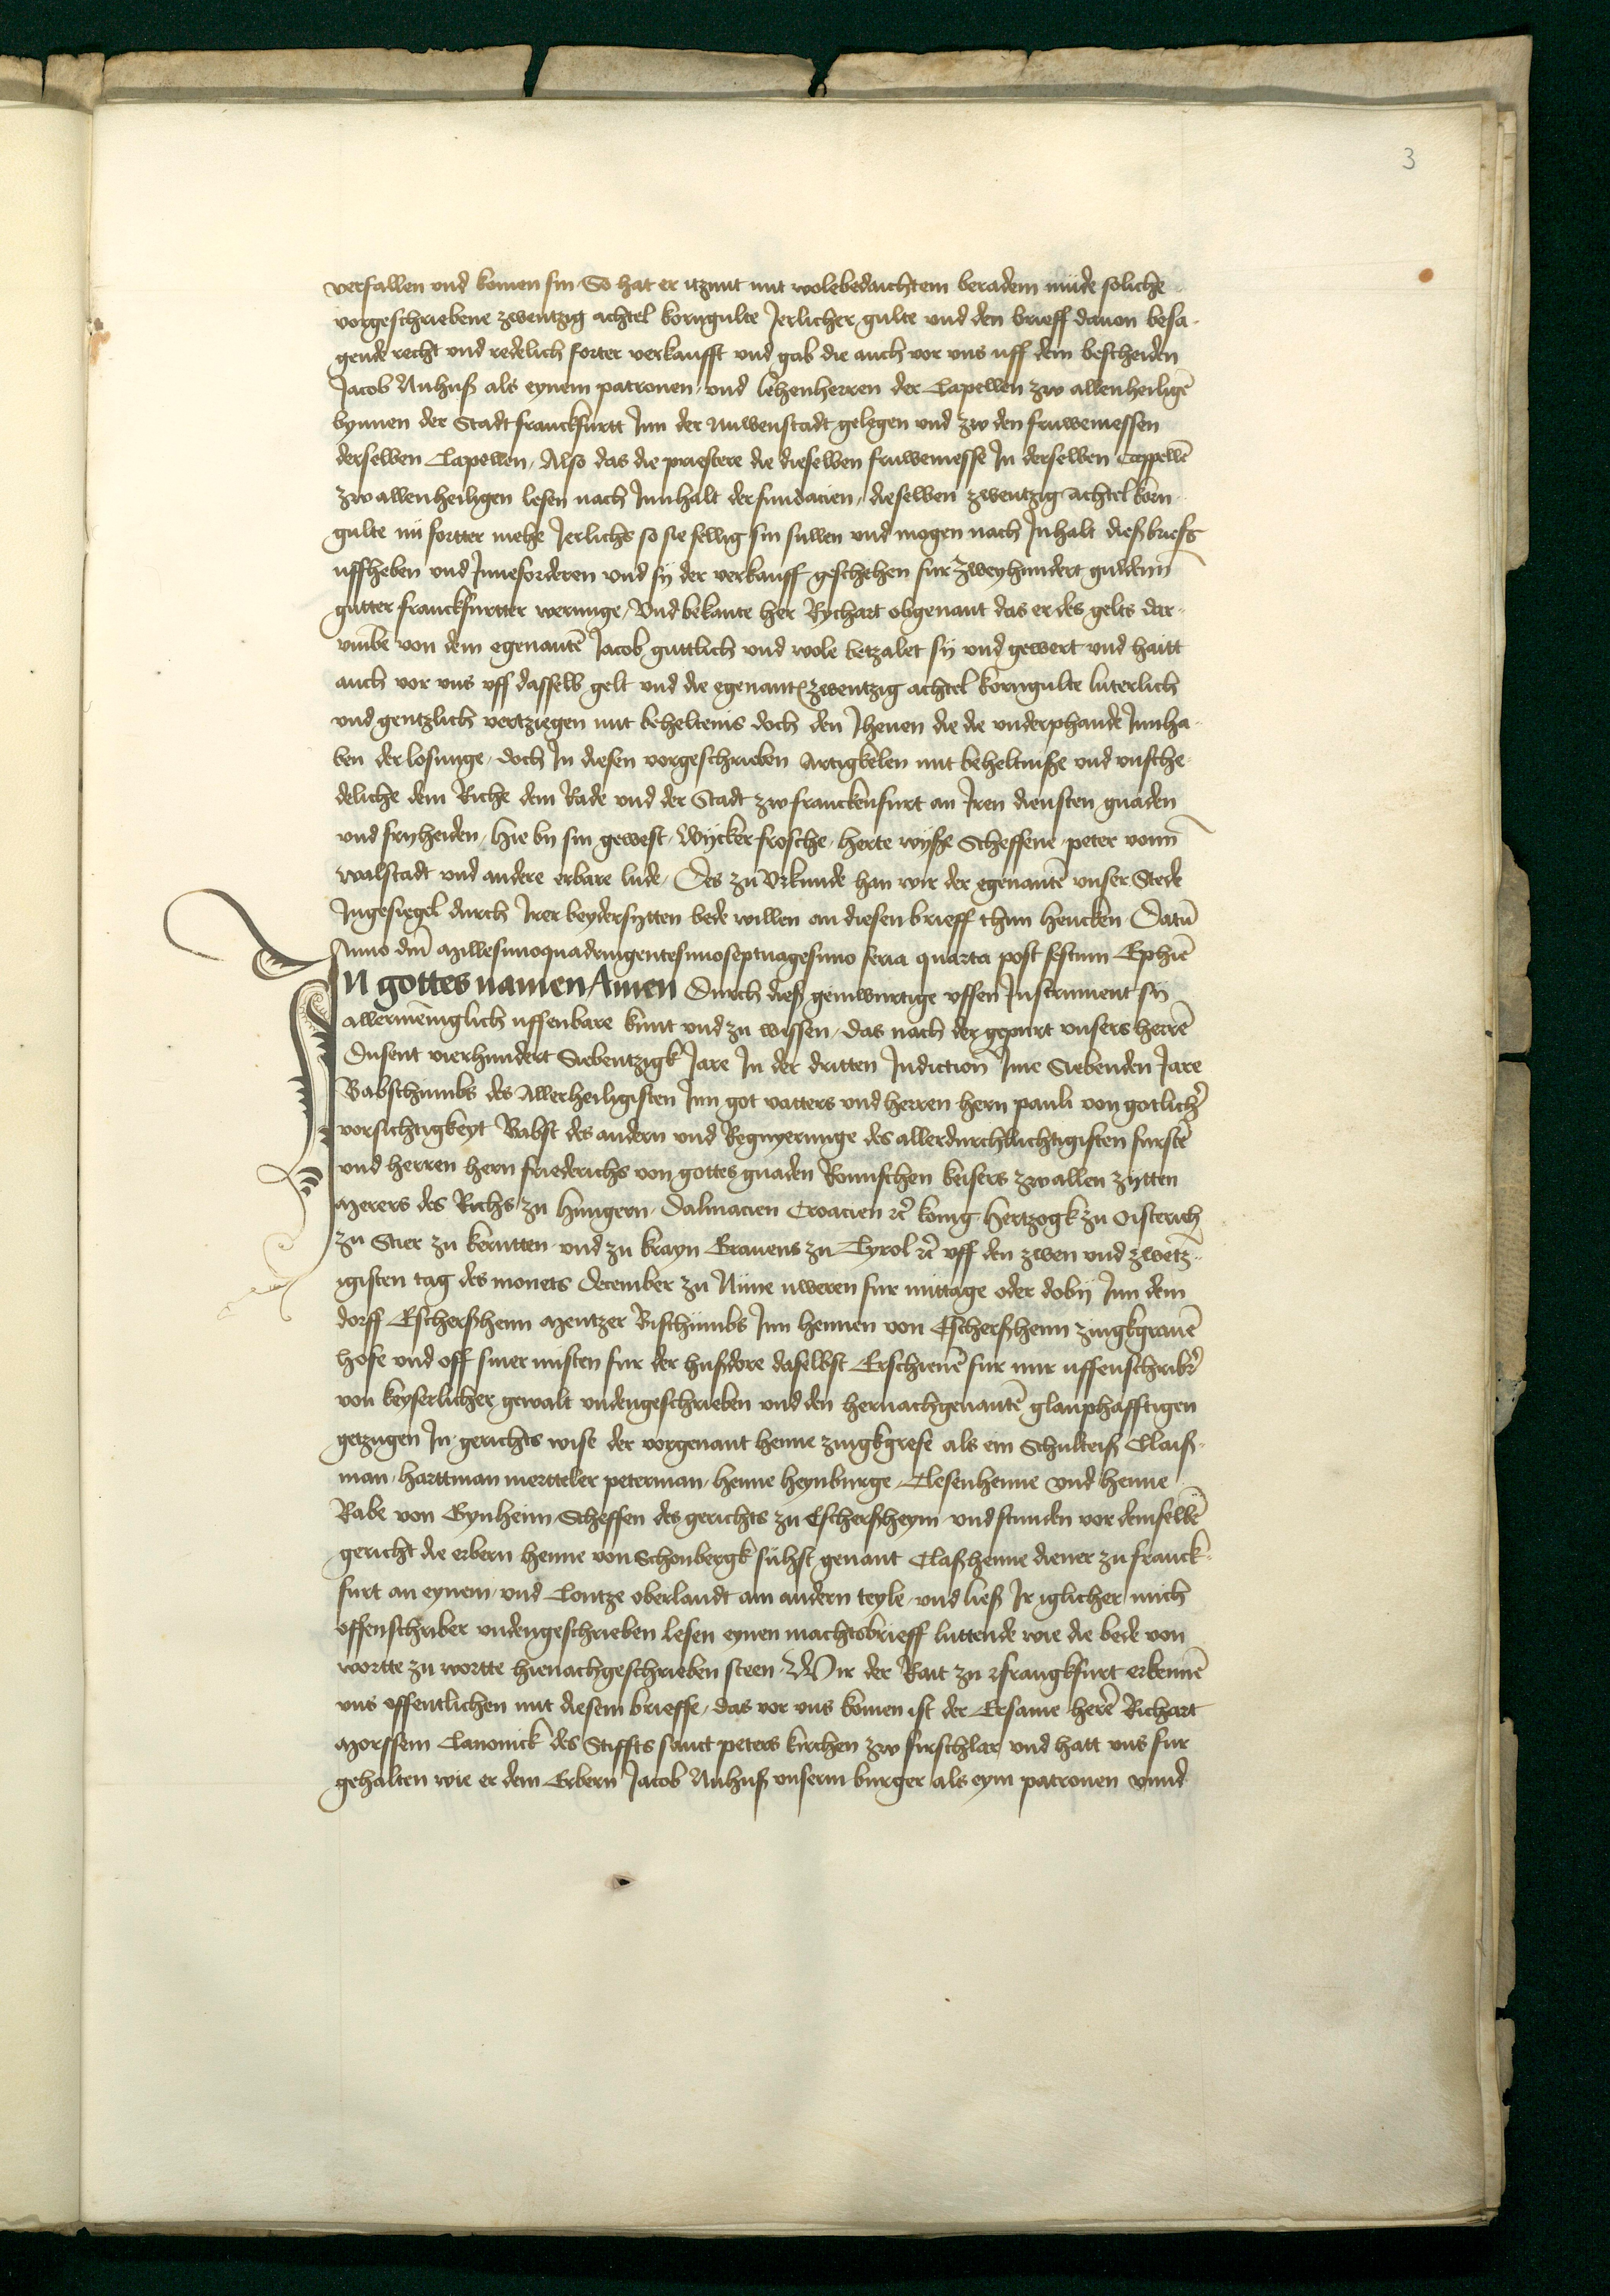 3
verfallen und komen sin So hat er itzunt mit wolebedachtem beradem müde soliche
vorgeschriebene zwentzig achtel korngulte Jerlicher gulte und den brieff dauon besa-
gende recht und redelich forter verkaufft und gab die auch vor uns uff dem bescheiden
Jacob Nuhuß als eynem patronen und lehenherren der Capellen zw allenheiligē
bynnen der Stadt franckfurtt Inn der Nuwenstadt gelegen und zw den fruwemessen
derselben Capellen, Also das die priestere die dieselben fruwemesse In derselben Cappellē
zw allenheiligen lesen nach Innhalt der fundacien, dieselben zwentzig achtel korn-
gulte nü fortter mehe Jerlichs so sie fellig sin sullen und mogen nach Inhalt dießbriefs
uffheben und Inneforderen und sÿ der verkauff geschehen fur zweyhundert guldenn
gutter franckfurtter werunge, Und bekante her Rychart obgenant das er des gelts dar-
vmbe von dem egenantē Jacob guttlich und wole betzalet sÿ und gewert und haitt
auch vor uns uff dasselb gelt und die egenant zwentzig achtel korngulte luterlich
und gentzlich vertziegen mit beheltenis doch den Jhenen die die underphande Innha-
ben der losunge, doch In diesen vorgeschrieben Artigkelen mit beheltniße und unsche-
deliche dem Riche dem Rade und der Stadt zw franckenfurt an Iren diensten gnaden
und fryheiden, Hie by sin gewest, Wycker frosche, herte wyße Scheffene peter vonn
walstadt und andere erbare lude, Des zu Urkunde han wir der egenantē unser Stede
Ingesiegel durch Irer beydersytten bede willen an diesen brieff thun hencken Datū
Anno dnī Millesimoquadringentesimoseptuagesimo feria quarta post festum Ephiē
IN gottes namen Amen Durch dieß geinwurtige uffen Instrument sÿ
allermeniglich uffenbare kunt und zu wissen, das nach der gepurt unsers herrē
Dusent vierhundert Siebentzigk Jare In der dritten Indiction Ime Siebenden Jare
Babschumbs des Allerheiligisten Inn got vatters und herren hern pauli von gotlichꝰ
vorsichtigkeyt Babst des andern und Regnyerunge des allerdurchluchtigisten furstē
und herren hern friederichs von gottes gnaden Romischen keisers zw allen zytten
Merers des Richs zu Hungern, Dalmacien Croacien ꝛc̄ konig hertzogk zu Oisterich
zu Stier zu kerntten und zu krayn Grauens zu Tyrol ꝛc̄ uff den zwen und zwetz-
igisten tag des monets December zu Nüne uweren fur mittage oder dobÿ Inn dem
dorff Escherßheim Mentzer Bischümbs Inn hennen von Escherßheim zingkgrauē
hofe und off siner misten fur der hußdore daselbst Erschienē fur mir uffenschribꝰ
von keyserlicher gewalt undengeschrieben und den hernachgenantē glauphafftigen
getzugen In gerichts wise der vorgenant henne zingkgrefe als ein Schulteiß Claiß-
man, harttman mertteler peterman, henne heynburge, Clesenhenne und henne
Rabe von Gynheim Scheffen des gerichts zu Escherßheym und stunden vor demselbē
gericht die erbern henne von Schonbergk süßt genant Claßhenne diener zu franck-
furt an eynem, und Contze oberlandt am andern teyle, und ließ Ir iglicher mich
offenschriber undengeschrieben lesen eynen machtsbrieff luttende wie die bede von
wortte zu wortte hienachgeschrieben steen. Wir der Rait zu Frangkfurt erkennē
uns offentlichen mit diesem brieffe, das vor uns komen ist der Ersame herē Richart
Morssem Canonick des Stiffts sanct peters kirchen zw firschlar und hatt uns fur
gehalten wie er dem Erbern Jacob Nuhuß unserm burger als eym patronen vnnd